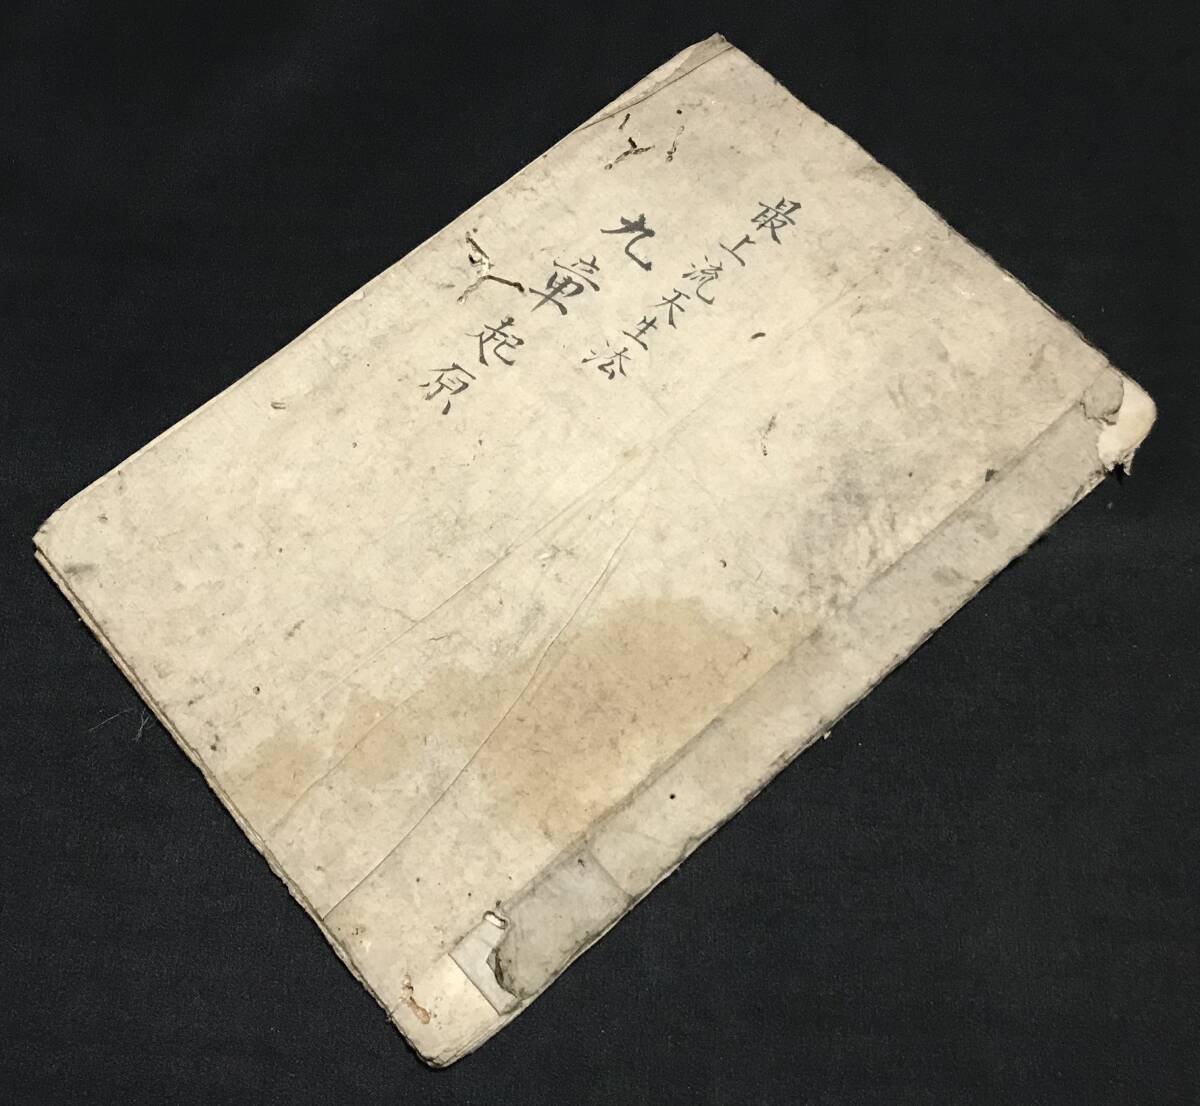 最上流天生法
九章起原